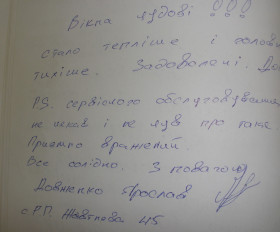 Вікна чудові !!!
стало тепліше і
тихіше. Задоволені.
P.S. сервісного обслуговування
не чекав і не чув про таке
Приємно вражений.
Все солідно. З повагою
Довженко Ярослав
Жовтнева 45